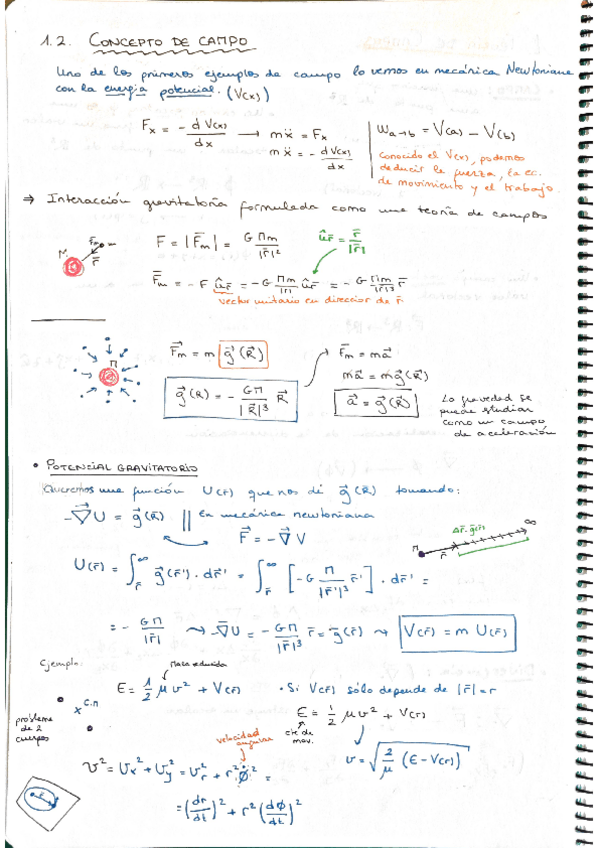 1.2. CONCEPTO DE CAMPO
Uno de los primeros ejemplos de campo lo vemos en mecánica Newtoniana
con la energía potencial. (V(x))
F_x = - dV(x)/dx → mẍ = F_x
mẍ = - dV(x)/dx
W_{a→b} = V(a) - V(b)
Conocido el V(x), podemos
deducir la fuerza, la ec.
de movimiento y el trabajo.
⇒ Interacción gravitatoria formulada como una teoría de campos
M F_m m r̄
F = |F̄_m| = G M m/|r̄|²
û_r̄ = r̄/|r̄|
F̄_m = - F û_r̄ = - G M m/|r| û_r̄ = - G M m/|r̄|³ r̄
vector unitario en dirección de r̄
M
F⃗_m = m g⃗(R⃗)
g⃗(R) = - GM/|R⃗|³ R⃗
F⃗_m = ma⃗
ma⃗ = mg⃗(R)
a⃗ = g⃗(R⃗)
La gravedad se
puede estudiar
como un campo
de aceleración
• POTENCIAL GRAVITATORIO
Queremos una función U(r̄) que nos dé g⃗(R) tomando:
-∇⃗U = g⃗(R) || En mecánica newtoniana
F⃗ = -∇⃗V
M r̄ Δr̄·g(r̄) ∞
U(r̄) = ∫_r̄^∞ g⃗(r̄')·dr̄' = ∫_r̄^∞ [-G M/|r̄'|³ r̄']·dr̄' =
= - GM/|r̄| ⇝ -∇⃗U = -G M/|r̄|³ r̄ = g⃗(r̄) ⇝ V(r̄) = m U(r̄)
Ejemplo:
Masa reducida
E = 1/2 μv² + V(r̄) · Si V(r̄) sólo depende de |r̄| = r
C.M
problema
de 2
cuerpos
E = 1/2 μv² + V(r)
cte de
mov.
velocidad
angular
v = √(2/μ (E - V(r)))
v² = v_x² + v_y² = v_r² + r² φ̇² =
= (dr/dt)² + r² (dφ/dt)²